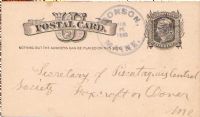 POSTAL CARD.
NOTHING BUT THE ADDRESS CAN BE PLACED ON THIS SIDE
MONSON,
Secretary of Piscataquis Central
Society Foxcroft or Dover
Me